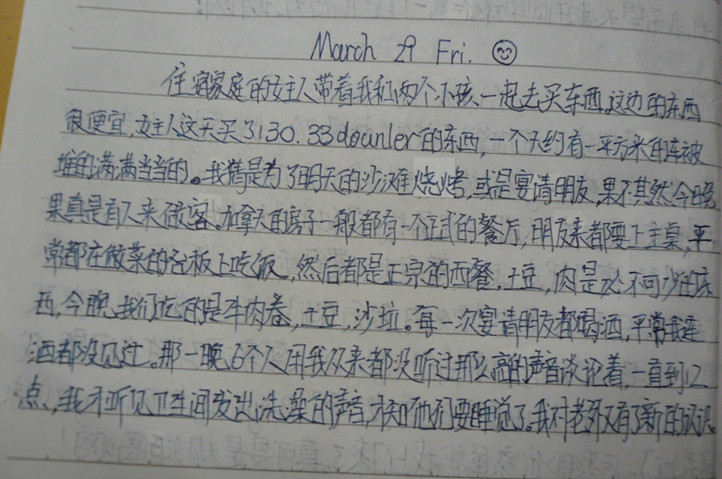 March 29 Fri.
住宿家庭的女主人带着我和两个小孩一起去买东西,这边的东西
很便宜,女主人这天买了130.33dounler的东西,一个大约有一平方米的车被
堆的满满当当的。我猜是为了明天的沙滩烧烤,或是宴请朋友,果不其然今晚
果真是有人来做客。加拿大的房子一般都有一个正式的餐厅,朋友来都要上主桌,平
常都在做菜的台板上吃饭,然后都是正宗的西餐,土豆,肉是必不可少的东
西,今晚,我们吃的是牛肉卷,土豆,沙拉。每一次宴请朋友都喝酒,平常我连
酒都没见过。那一晚,6个人用我从来都没听过那么高的声音谈论着,一直到12
点,我才听见卫生间发出洗澡的声音,才知他们要睡觉了。我对老外又有了新的认识